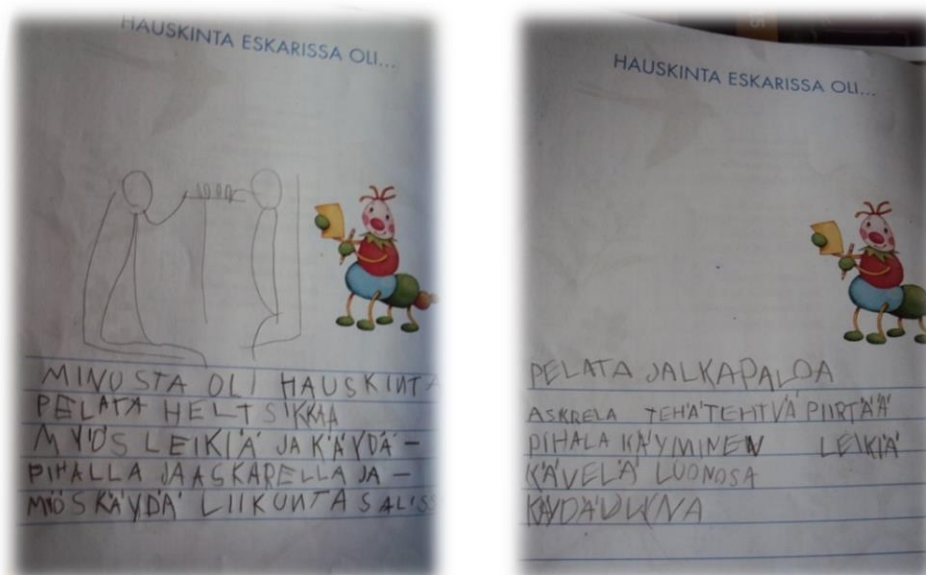 HAUSKINTA ESKARISSA OLI...
MINUSTA OLI HAUSKINTA
PELATA HELTSIKKAA
MYÖS LEIKIÄ JA KÄYDÄ-
PIHALLA JA ASKARELLA JA-
MIÖS KÄYDÄ LIIKUNTASALISS
HAUSKINTA ESKARISSA OLI...
PELATA JALKAPALOA
ASKRELA TEHÄ TEHTVÄ PIIRTÄÄ
PIHALA KÄYMINEN LEIKIÄ
KÄVELÄ LUONOSA
KÄYDÄ